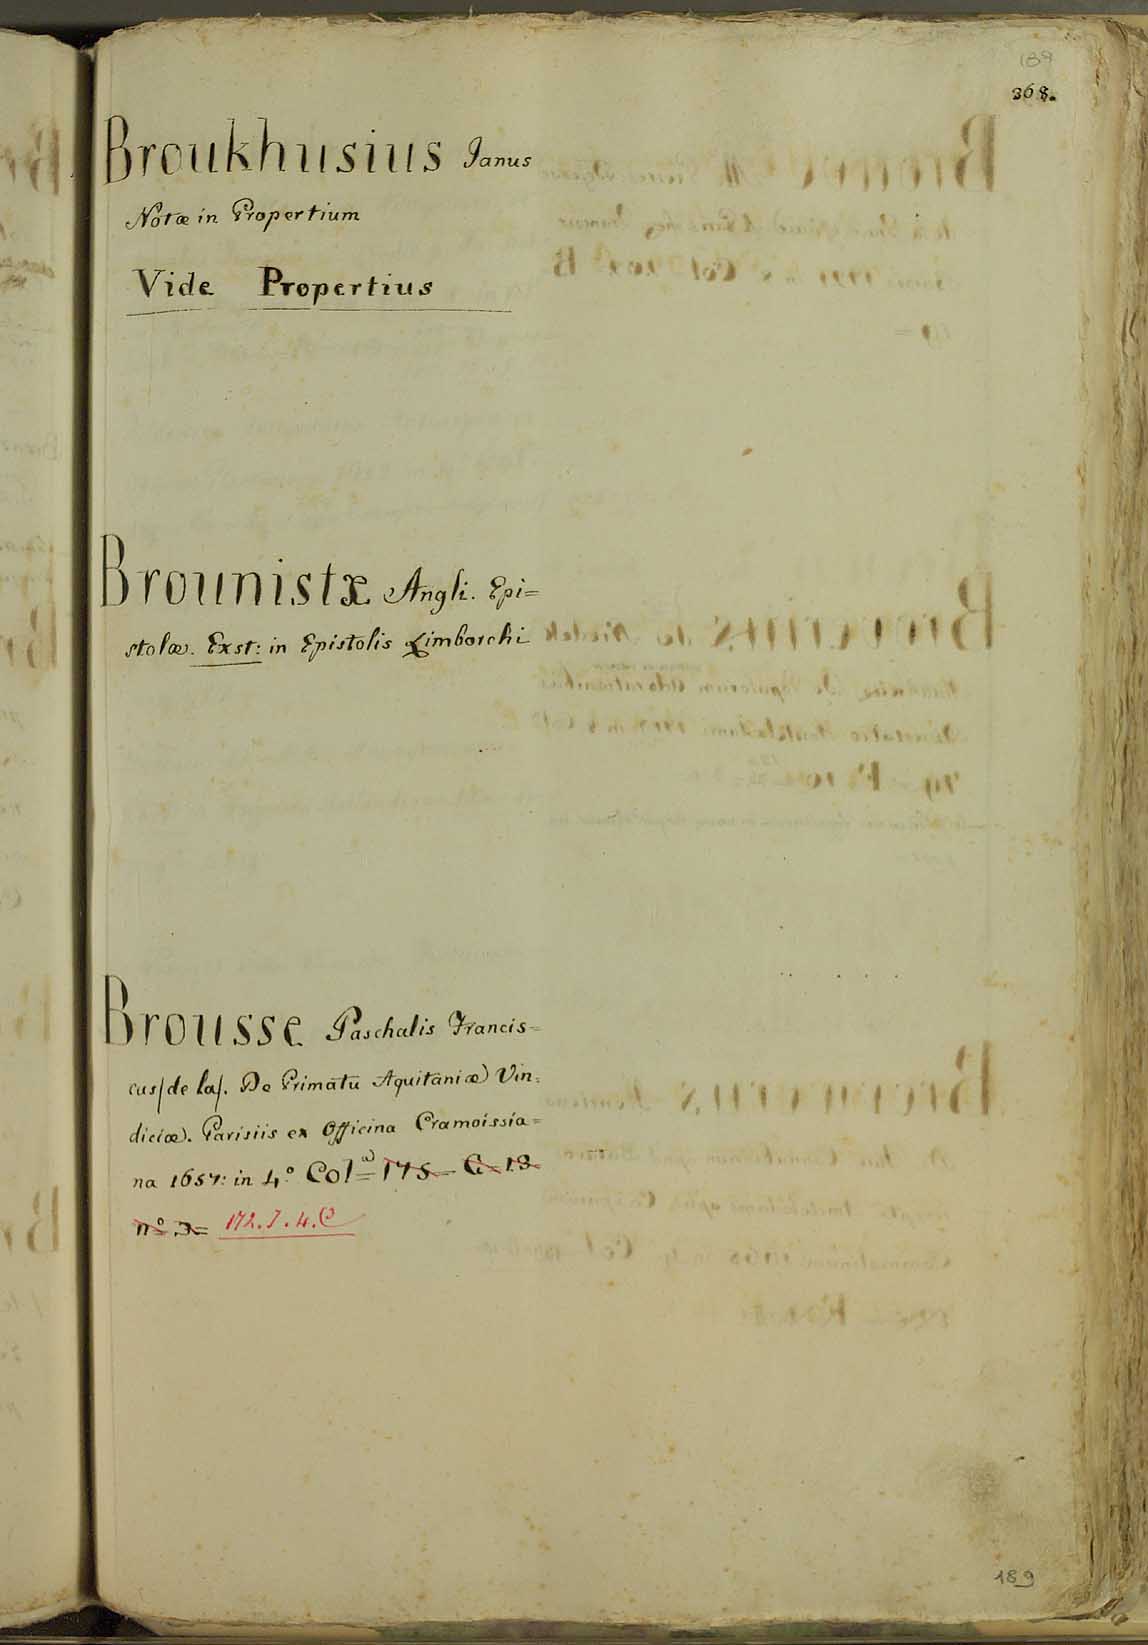 189
368.
Broukhusius Janus
Notæ in Propertium
Vide Propertius
Brounistæ Angli. Epi=
stolæ. Exst: in Epistolis Limborchi
Brousse Paschalis Francis=
cus /de la/. De Primatu Aquitaniæ Vin=
diciæ. Parisiis ex Officina Cramoissia=
na 1657: in 4.º Colª= 175= G. 13.
nº 3= 172. J. 4. C
189